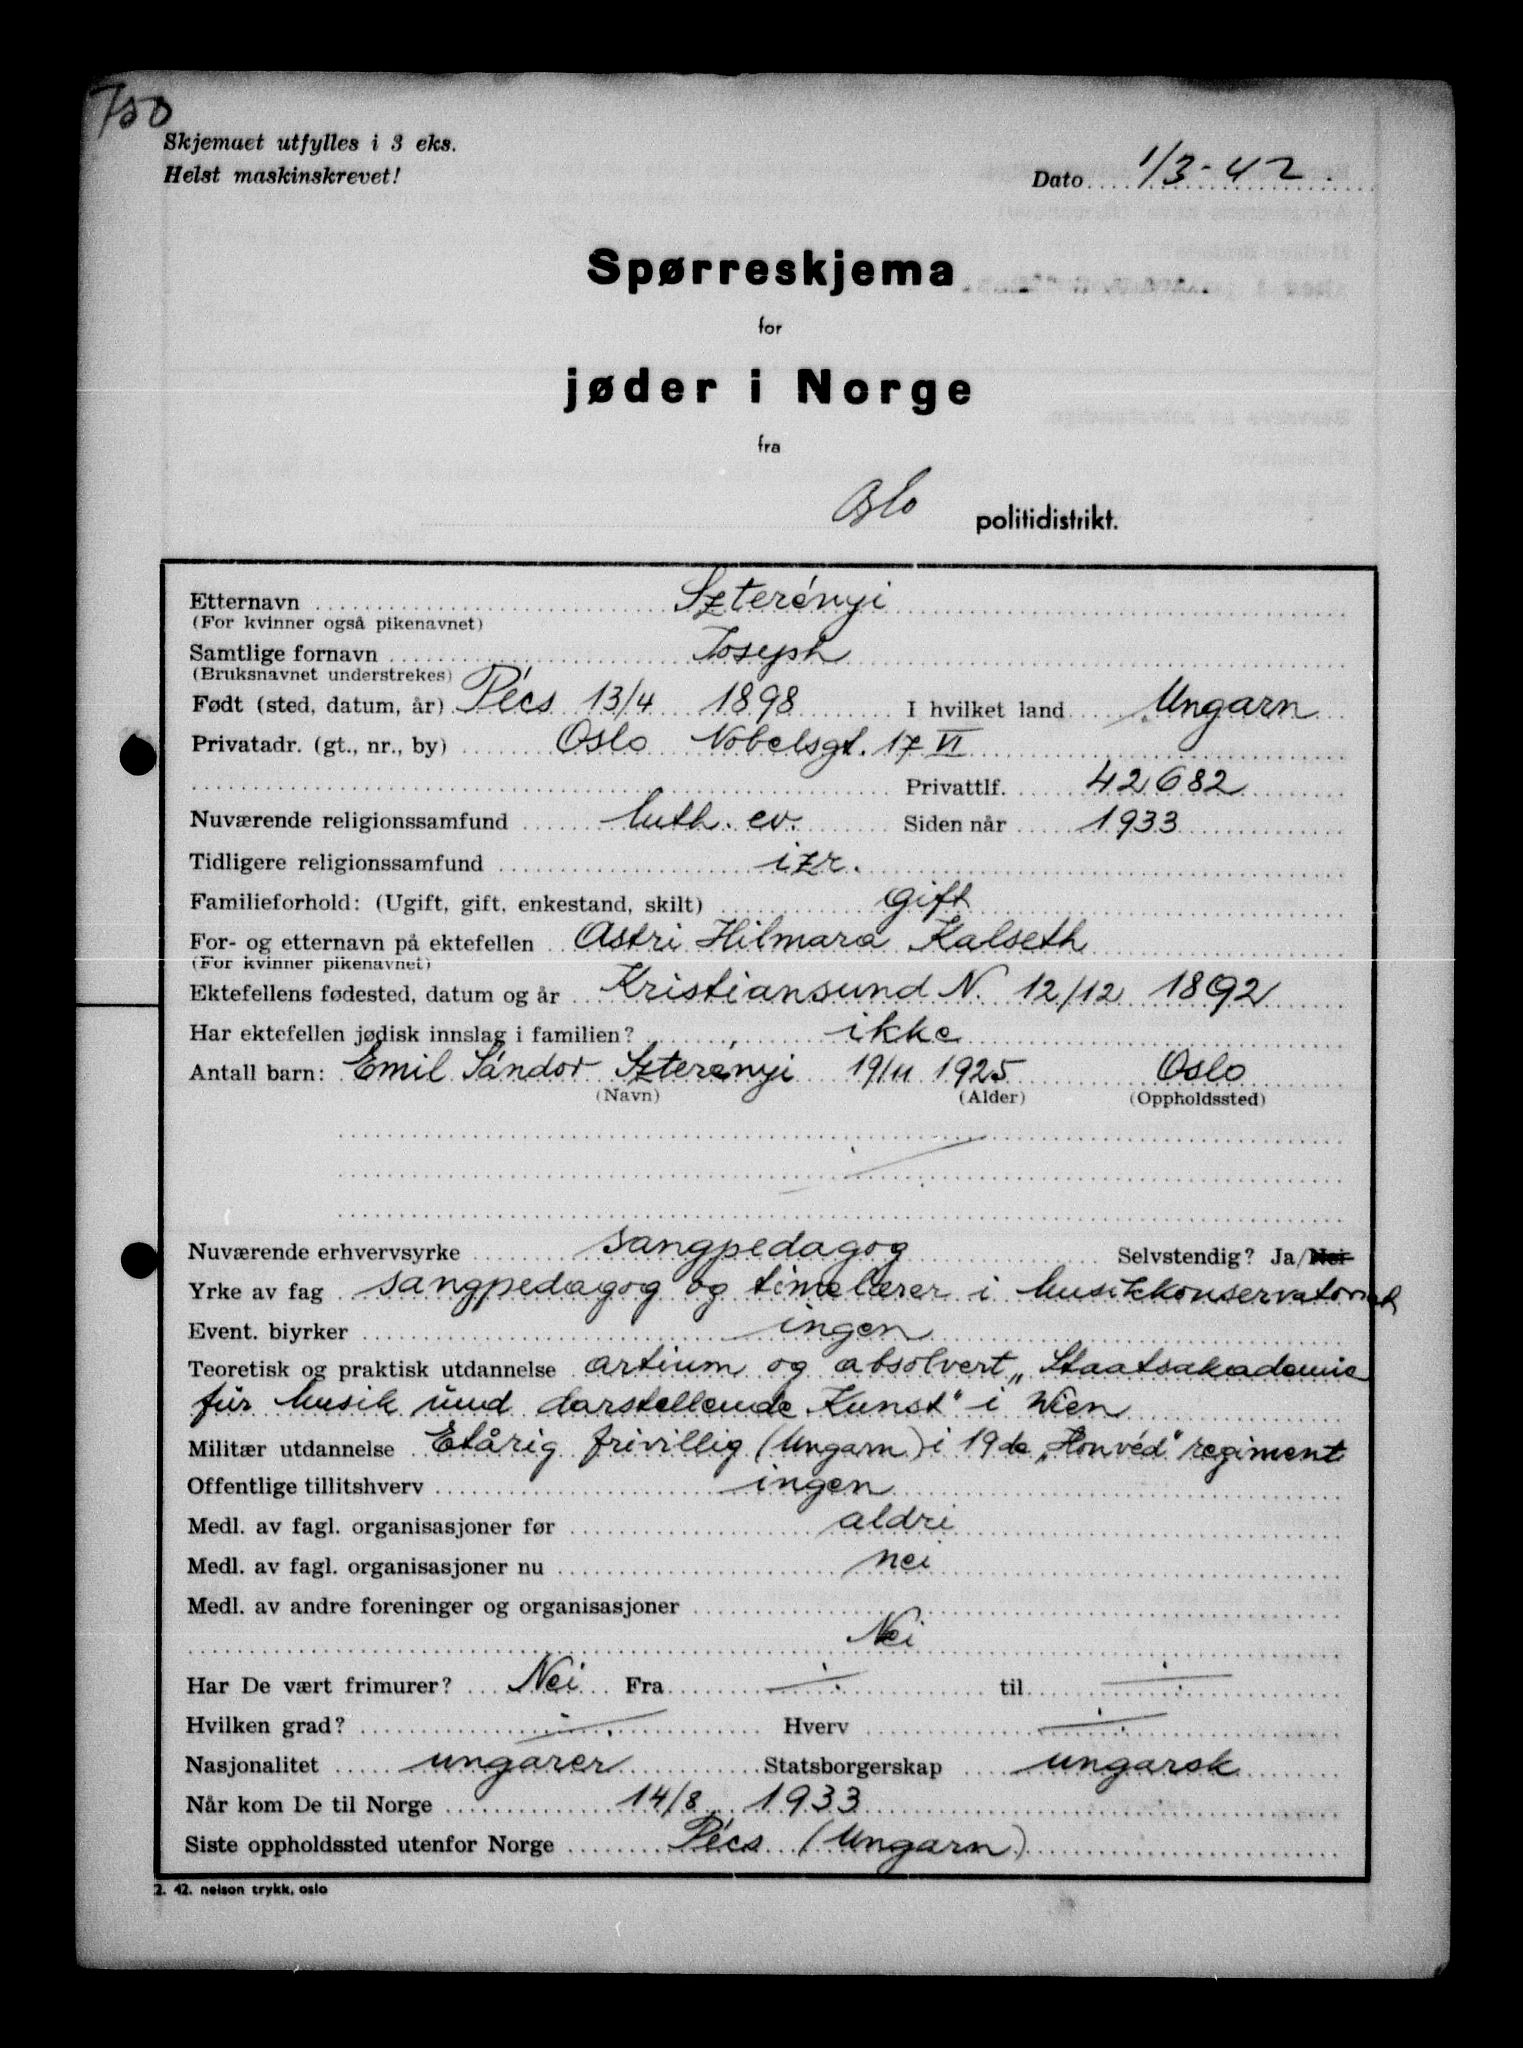 750
Skjemaet utfylles i 3 eks.
Helst maskinskrevet!
Dato 1/3-42.
Spørreskjema
for
jøder i Norge
fra
Oslo politidistrikt.
Etternavn Szterényi
(For kvinner også pikenavnet)
Samtlige fornavn Joseph
(Bruksnavnet understrekes)
Født (sted, datum, år) Pécs 13/4 1898 I hvilket land Ungarn
Privatadr. (gt., nr., by) Oslo Nobelsgt. 17 VI
Privattlf. 42682
Nuværende religionssamfund luth. ev. Siden når 1933
Tidligere religionssamfund izr.
Familieforhold: (Ugift, gift, enkestand, skilt) gift
For- og etternavn på ektefellen Astri Hilmara Kalseth
(For kvinner pikenavnet)
Ektefellens fødested, datum og år Kristiansund N. 12/12 1892
Har ektefellen jødisk innslag i familien? ikke
Antall barn: Emil Sándor Szterényi 19/11 1925 Oslo
(Navn) (Alder) (Oppholdssted)
Nuværende erhvervsyrke sangpedagog Selvstendig? Ja/Nei
Yrke av fag sangpedagog og timelærer i Musikkonservatoriet
Event. biyrker ingen
Teoretisk og praktisk utdannelse artium og absolvert „Staatsakademie
für Musik und darstellende Kunst" i Wien
Militær utdannelse Etårig frivillig (Ungarn) i 19de „Honvéd" regiment
Offentlige tillitshverv ingen
Medl. av fagl. organisasjoner før aldri
Medl. av fagl. organisasjoner nu nei
Medl. av andre foreninger og organisasjoner
Nei
Har De vært frimurer? Nei Fra ÷ til ÷
Hvilken grad? ÷ Hverv ÷
Nasjonalitet ungarer Statsborgerskap ungarsk
Når kom De til Norge 14/8 1933
Siste oppholdssted utenfor Norge Pécs (Ungarn)
2. 42. nelson trykk, oslo